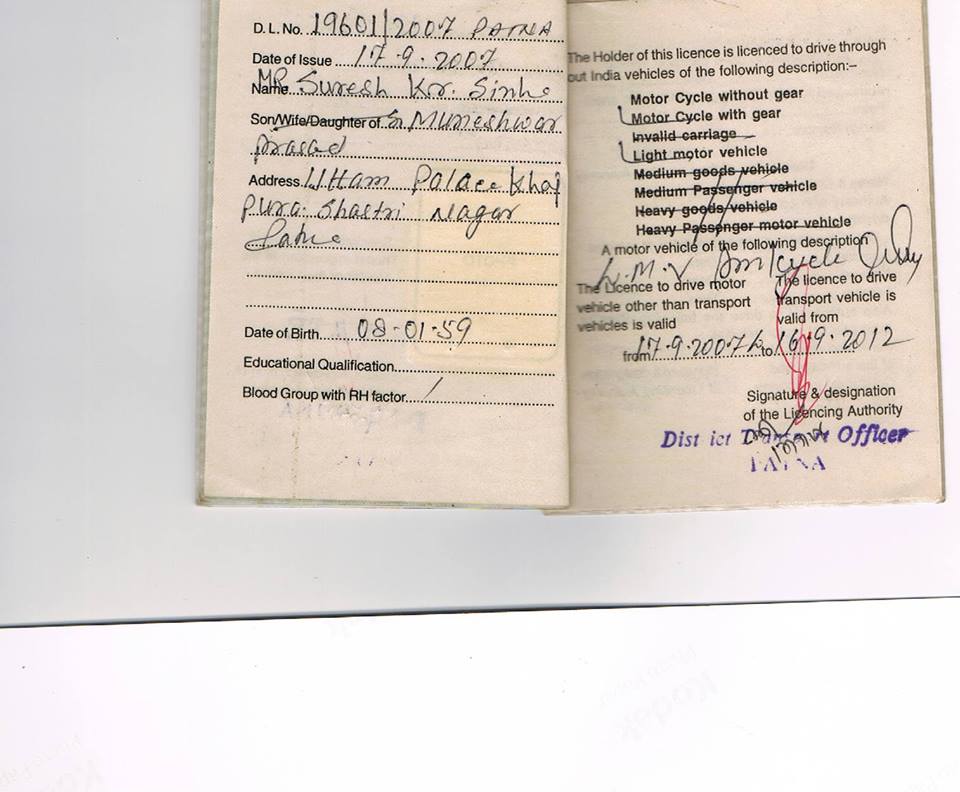 D. L. No. 19601/2007 PATNA
Date of Issue 17.9.2007
Name MR Suresh Kr. Sinha
Son/Wife/Daughter of Sri Muneshwar
Prasad
Address Uttam Palace Khaj
pura. Shastri Nagar
Patna
Date of Birth 08-01-59
Educational Qualification
Blood Group with RH factor
The Holder of this licence is licenced to drive through
out India vehicles of the following description:–
Motor Cycle without gear
Motor Cycle with gear
Invalid carriage
Light motor vehicle
Medium goods vehicle
Medium Passenger vehicle
Heavy goods vehicle
Heavy Passenger motor vehicle
A motor vehicle of the following description
L.M.V cycle Only
The Licence to drive motor
vehicle other than transport
vehicles is valid
The licence to drive
transport vehicle is
valid from
from 17.9.2007 to 16.9.2012
Signature & designation
of the Licencing Authority
Dist ict Officer
PATNA